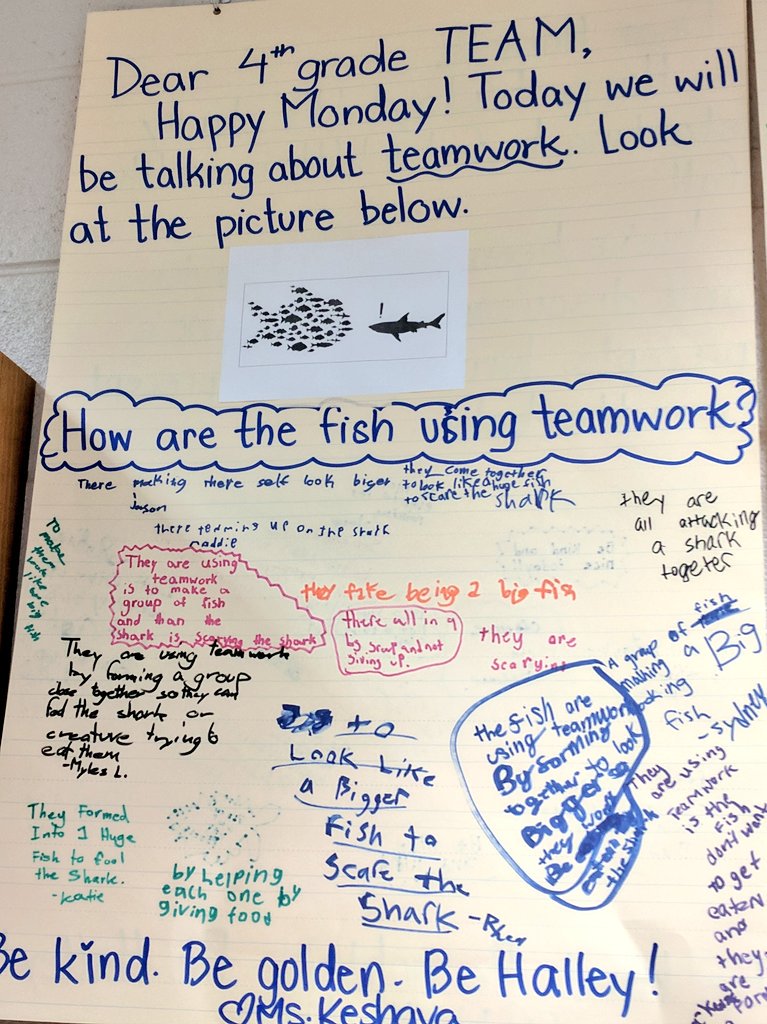 Dear 4th grade TEAM,
Happy Monday! Today we will
be talking about teamwork. Look
at the picture below.
!
How are the fish using teamwork?
There macking there self look biger
Jason
they come together
to look like a huge fish
to scare the shark
there teaming up on the shark
caddie
they are
all attacking
a shark
togeter
To make
them
look like
a big
fish
They are using
teamwork
is to make a
group of fish
and than the
shark is scarying the shark
they fake being 1 big fish
there all in a
big group and not
giving up.
they are
scaryin
They are using teamwork
by forming a group
close together so they can
fool the shark or
creature trying to
eat them
-Myles L.
A group of fish
making a Big
looking
fish
-Sydney
to
Look Like
a Bigger
Fish to
Scare the
Shark -Rhea
the fish are
using teamwork
By forming
together to look
Bigger so
they wont
Be
the shark
They are using
Teamwork
is the
fish
don't want
to get
eaten
and
they
are
They Formed
Into 1 Huge
Fish to fool
the Shark.
-Katie
by helping
each one by
giving food
Be kind. Be golden. Be Halley!
♡Ms. Keshava